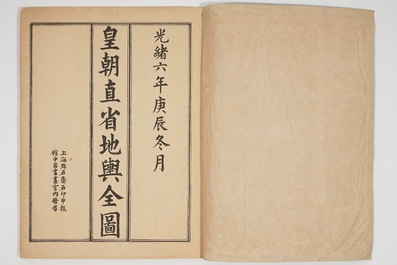 光緒六年庚辰冬月
皇朝直省地輿全圖
上海點石齋石印申報
館申昌書畫室內發售